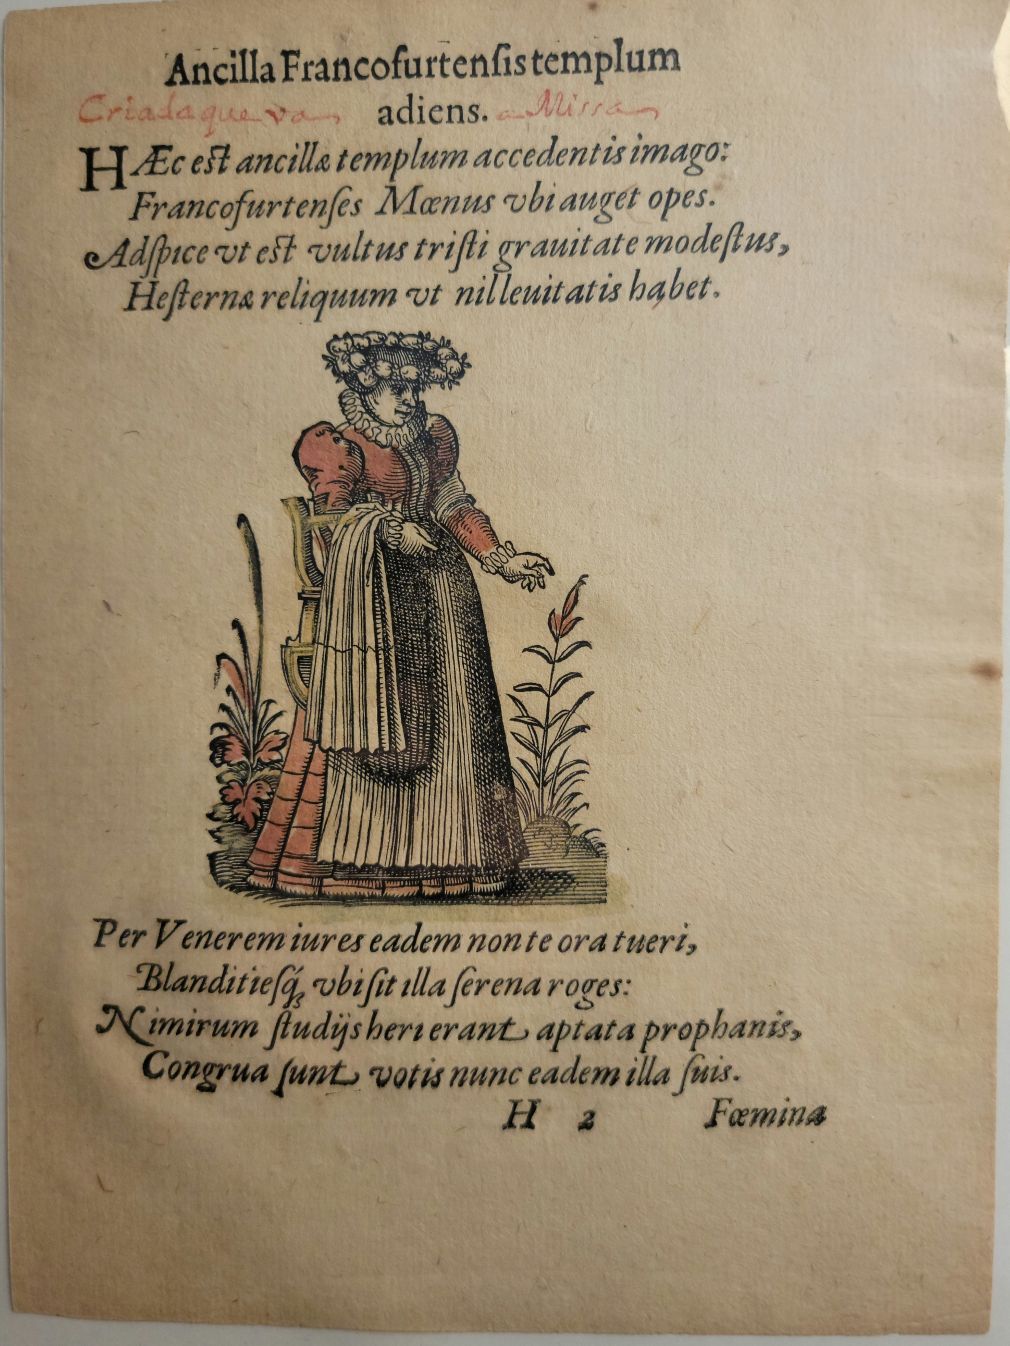 Ancilla Francofurtenſis templum
Criada que va adiens. a Missa
HÆc eſt ancillæ templum accedentis imago:
Francofurtenſes Mœnus vbi auget opes.
Adſpice vt eſt vultus triſti grauitate modeſtus,
Heſternæ reliquum vt nil leuitatis habet.
Per Venerem iures eadem non te ora tueri,
Blanditieſq́; vbi ſit illa ſerena roges:
Nimirum ſtudijs heri erant aptata prophanis,
Congrua ſunt votis nunc eadem illa ſuis.
H 2 Fœmina